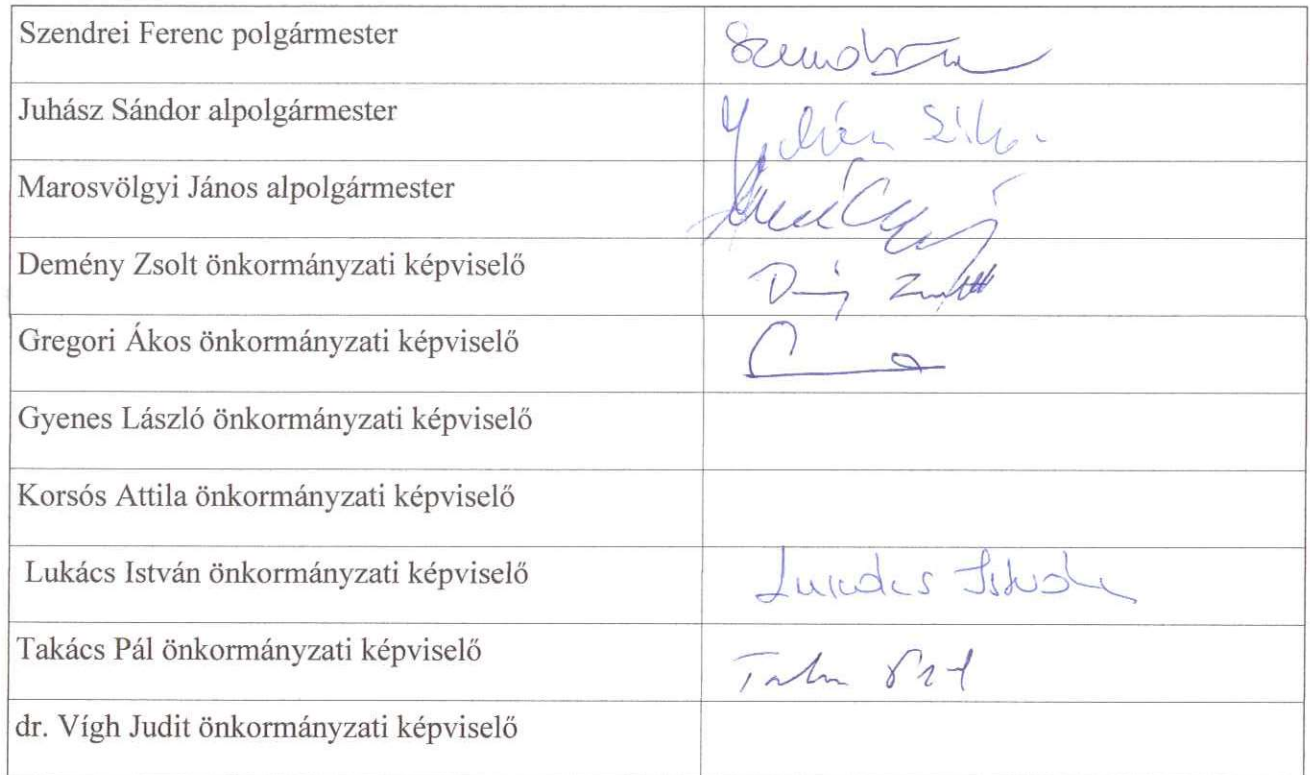 Szendrei Ferenc polgármester
Juhász Sándor alpolgármester
Marosvölgyi János alpolgármester
Demény Zsolt önkormányzati képviselő
Gregori Ákos önkormányzati képviselő
Gyenes László önkormányzati képviselő
Korsós Attila önkormányzati képviselő
Lukács István önkormányzati képviselő Lukács István
Takács Pál önkormányzati képviselő
dr. Vígh Judit önkormányzati képviselő